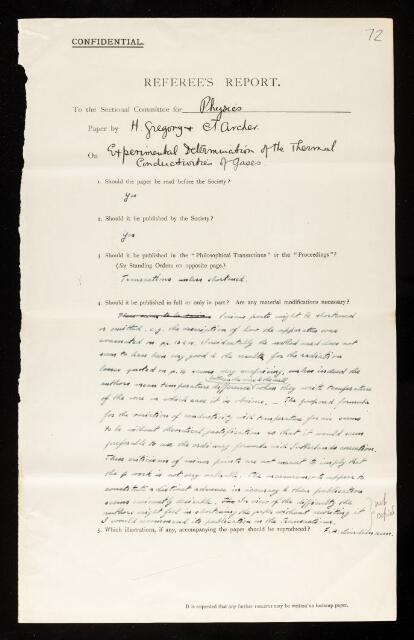 72
CONFIDENTIAL.
REFEREE'S REPORT.
To the Sectional Committee for Physics
Paper by H. Gregory & C T Archer.
On Experimental Determination of the Thermal
Conductivities of Gases.
1. Should the paper be read before the Society?
Yes
2. Should it be published by the Society?
Yes
3. Should it be published in the "Philosophical Transactions" or the "Proceedings"?
(See Standing Orders on opposite page.)
Transactions unless shortened.
4. Should it be published in full or only in part? Are any material modifications necessary?
Minor parts might be shortened
or omitted. e.g. the description of how the apparatus was
evacuated on p. Incidentally the method used does not
seem to have been very good & the results for the radiation
losses quoted on p. seem very surprising, unless indeed the
between wire & wall
authors mean temperature difference when they write temperature
of the wire in which case it is obvious. – The proposed formula
for the variation of conductivity with temperature for air seems
to be without theoretical justification so that it would seem
preferable to use the ordinary formula with Sutherlands correction.
These criticisms of minor points are not meant to imply that
the work is not very valuable. The measurements appear to
constitute a distinct advance in accuracy & their publication
seems eminently desirable. In view of the difficulty the
authors might feel in shortening the paper without rewriting it
I would recommend its publication in the transactions.
not
copied
5. Which illustrations, if any, accompanying the paper should be reproduced? F. A. Lindemann.
It is requested that any further remarks may be written on foolscap paper.